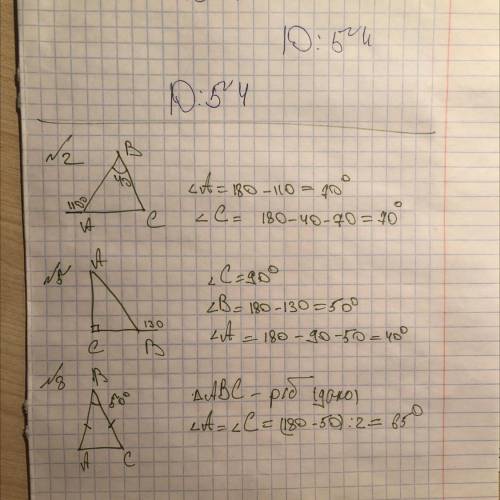 D:5~4
D:5~4
№2
B
40
110
A
C
∠A = 180 - 110 = 70°
∠C = 180 - 40 - 70 = 70°
№5
A
130
C
B
∠C = 90°
∠B = 180 - 130 = 50°
∠A = 180 - 90 - 50 = 40°
№8
B
50°
A
C
△ABC - р/б (дано)
∠A = ∠C = (180 - 50) : 2 = 65°